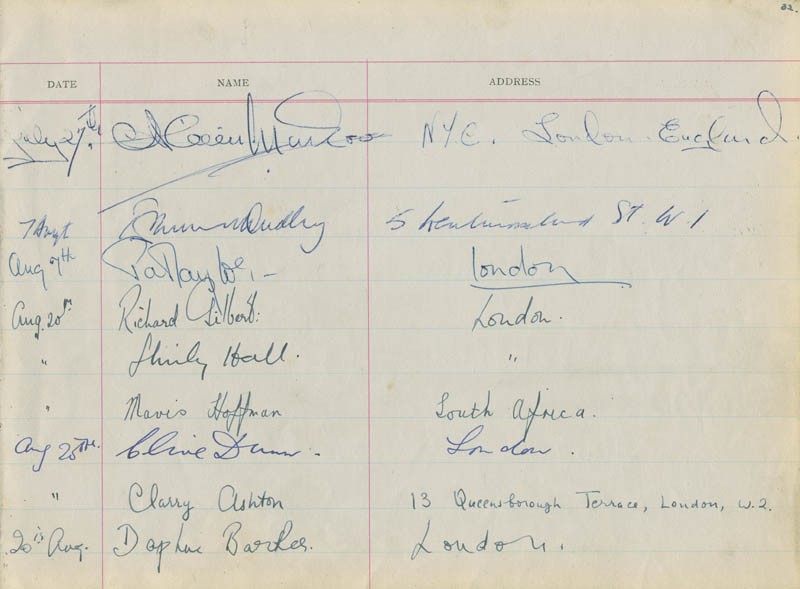 22.
DATE NAME ADDRESS
July 27th. N.Y.C. London England.
7 Augt Dudley 5 St. W.1
Aug 7th Pat Taylor. - London
Aug. 20th Richard Gilbert. London.
" Shirley Hall. "
" Mavis Hoffman South Africa.
Aug 20th. Clive Dunn. London.
" Clarry Ashton 13 Queensborough Terrace, London, W.2.
20th Aug. Daphne Barker. London.